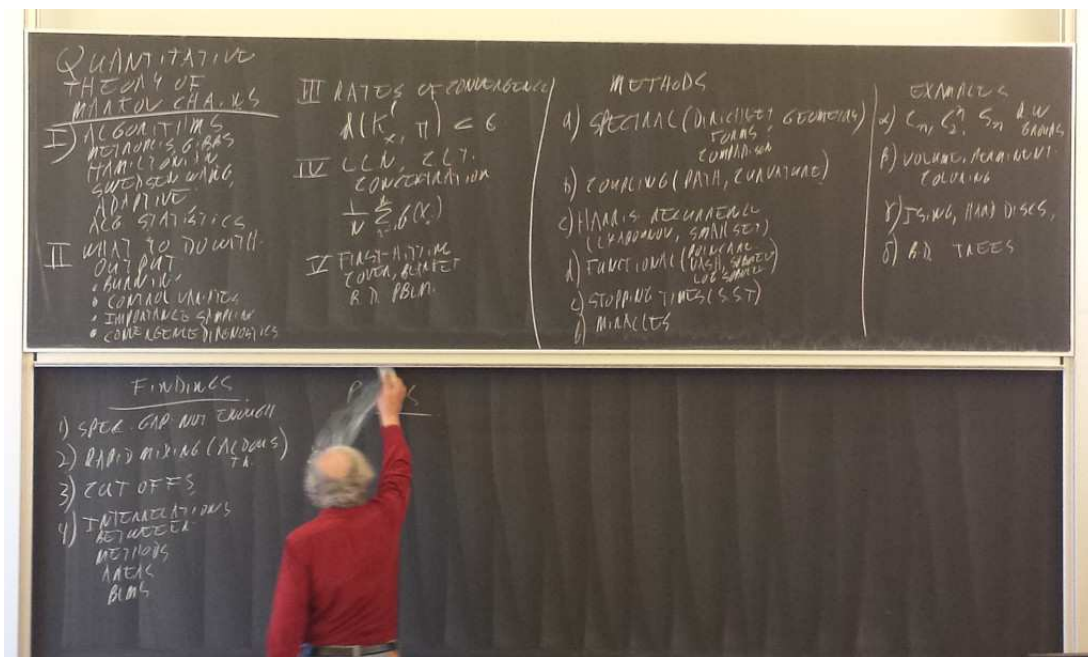 QUANTITATIVE
THEORY OF
MARKOV CHAINS
I) ALGORITHMS
METROPOLIS, GIBBS
HAMILTONIAN
SWENDSEN WANG,
ADAPTIVE
ALG STATISTICS
II WHAT TO DO WITH
OUTPUT
• BURN IN
• CONTROL VARIATES
• IMPORTANCE SAMPLING
• CONVERGENCE DIAGNOSTICS
III RATES OF CONVERGENCE
IV LLN, CLT.
CONCENTRATION
V FIRST-HITTING
COVER, BLANKET
R.D. PBLM.
METHODS
a) SPECTRAL (DIRICHLET GEOMETRY)
FORMS,
COMPARISON
b) COUPLING (PATH, CURVATURE)
c) HARRIS RECURRENCE
(LYAPOUNOV, SMALL SET)
d) FUNCTIONAL (POINCARE
NASH, SOBOLEV
LOG SOBOLEV)
e) STOPPING TIMES (S.S.T)
f) MIRACLES
EXAMPLES
α) Cₙ, C₂ⁿ, Sₙ R W
GROUPS
β) VOLUME, PERMINENT
COLORING
γ) ISING, HARD DISCS,
δ) TREES
FINDINGS
1) SPEC. GAP NOT ENOUGH
2) RAPID MIXING (ALDOUS)
3) CUT OFFS
4) INTERRELATIONS
BETWEEN
METHODS
AREAS